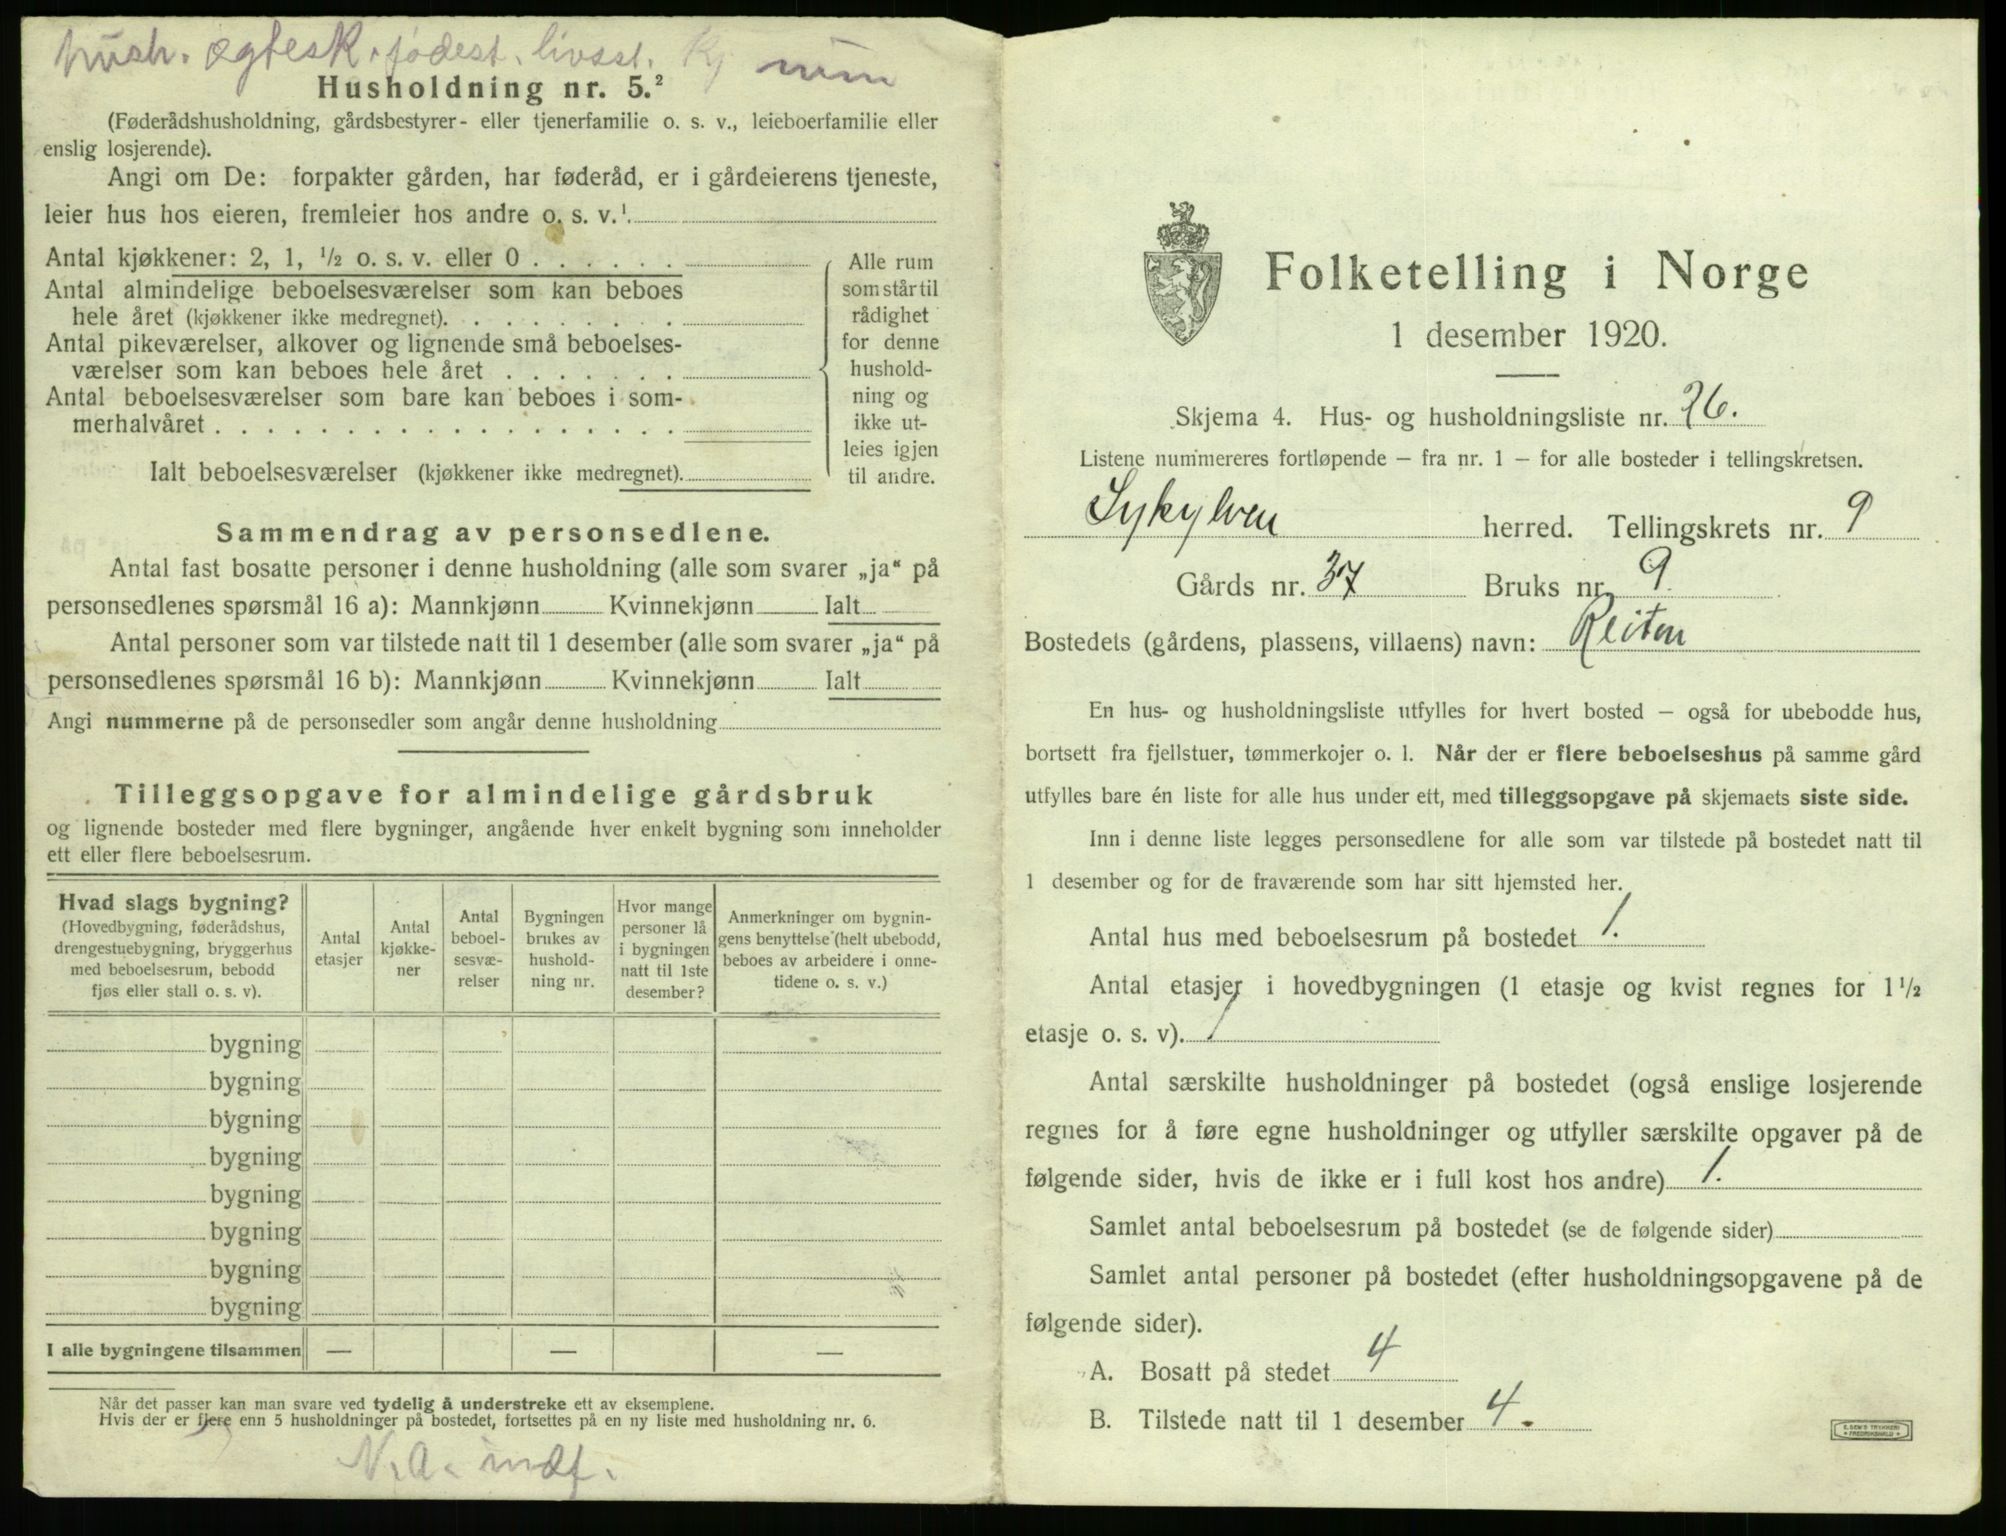 hush. ægtesk. fødest. livsst. Kj num
Husholdning nr. 5.²
(Føderådshusholdning, gårdsbestyrer- eller tjenerfamilie o. s. v., leieboerfamilie eller
enslig losjerende).
Angi om De: forpakter gården, har føderåd, er i gårdeierens tjeneste,
leier hus hos eieren, fremleier hos andre o. s. v.¹
Antal kjøkkener: 2, 1, ½ o. s. v. eller 0 . . . . . .
Antal almindelige beboelsesværelser som kan beboes
hele året (kjøkkener ikke medregnet). . . . . . . . .
Antal pikeværelser, alkover og lignende små beboelses-
værelser som kan beboes hele året . . . . . . .
Antal beboelsesværelser som bare kan beboes i som-
merhalvåret . . . . . . . . . . . . . . . . . .
Ialt beboelsesværelser (kjøkkener ikke medregnet).
Alle rum
som står til
rådighet
for denne
hushold-
ning og
ikke ut-
leies igjen
til andre.
Sammendrag av personsedlene.
Antal fast bosatte personer i denne husholdning (alle som svarer „ja“ på
personsedlenes spørsmål 16 a): Mannkjønn Kvinnekjønn Ialt
Antal personer som var tilstede natt til 1 desember (alle som svarer „ja“ på
personsedlenes spørsmål 16 b): Mannkjønn Kvinnekjønn Ialt
Angi nummerne på de personsedler som angår denne husholdning
Tilleggsopgave for almindelige gårdsbruk
og lignende bosteder med flere bygninger, angående hver enkelt bygning som inneholder
ett eller flere beboelsesrum.
Hvad slags bygning?
(Hovedbygning, føderådshus,
drengestuebygning, bryggerhus
med beboelsesrum, bebodd
fjøs eller stall o. s. v).
Antal
etasjer
Antal
kjøkke-
ner
Antal
beboel-
sesvæ-
relser
Bygningen
brukes av
hushold-
ning nr.
Hvor mange
personer lå
i bygningen
natt til 1ste
desember?
Anmerkninger om bygnin-
gens benyttelse (helt ubebodd,
beboes av arbeidere i onne-
tidene o. s. v.)
bygning
bygning
bygning
bygning
bygning
bygning
bygning
bygning
I alle bygningene tilsammen — — —
Når det passer kan man svare ved tydelig å understreke ett av eksemplene.
Hvis der er flere enn 5 husholdninger på bostedet, fortsettes på en ny liste med husholdning nr. 6.
N. A. indf.
Folketelling i Norge
1 desember 1920.
Skjema 4. Hus- og husholdningsliste nr. 26.
Listene nummereres fortløpende — fra nr. 1 — for alle bosteder i tellingskretsen.
Sykylven herred. Tellingskrets nr. 9
Gårds nr. 37 Bruks nr. 9.
Bostedets (gårdens, plassens, villaens) navn: Reiten
En hus- og husholdningsliste utfylles for hvert bosted — også for ubebodde hus,
bortsett fra fjellstuer, tømmerkojer o. l. Når der er flere beboelseshus på samme gård
utfylles bare én liste for alle hus under ett, med tilleggsopgave på skjemaets siste side.
Inn i denne liste legges personsedlene for alle som var tilstede på bostedet natt til
1 desember og for de fraværende som har sitt hjemsted her.
Antal hus med beboelsesrum på bostedet 1.
Antal etasjer i hovedbygningen (1 etasje og kvist regnes for 1½
etasje o. s. v). 1
Antal særskilte husholdninger på bostedet (også enslige losjerende
regnes for å føre egne husholdninger og utfyller særskilte opgaver på de
følgende sider, hvis de ikke er i full kost hos andre) 1.
Samlet antal beboelsesrum på bostedet (se de følgende sider)
Samlet antal personer på bostedet (efter husholdningsopgavene på de
følgende sider).
A. Bosatt på stedet 4
B. Tilstede natt til 1 desember 4.
E. SEM'S TRYKKERI
FREDRIKSHALD